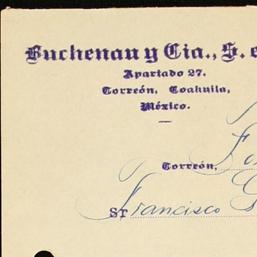 Buchenau y Cia., S.
Apartado 27.
Torreón, Coahuila,
México.
Torreón,
Sr Francisco